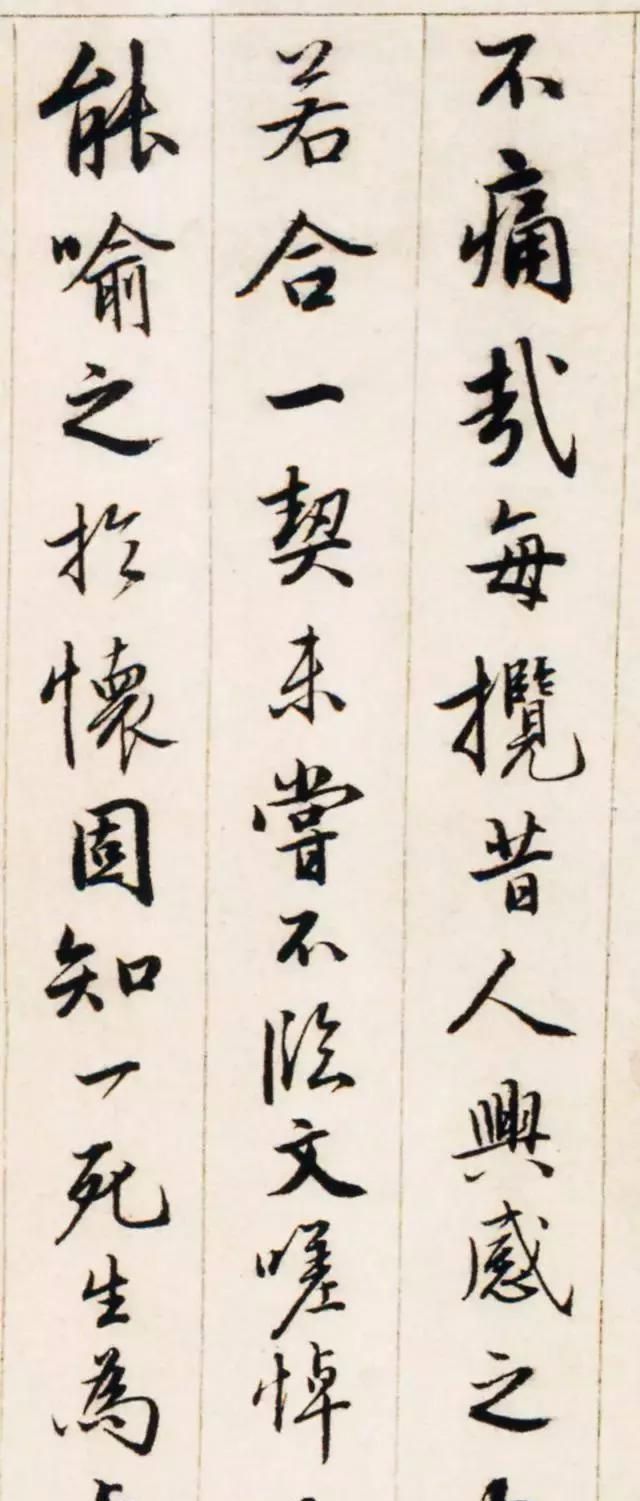 不痛哉每攬昔人興感之
若合一契未嘗不臨文嗟悼
能喻之於懷固知一死生為